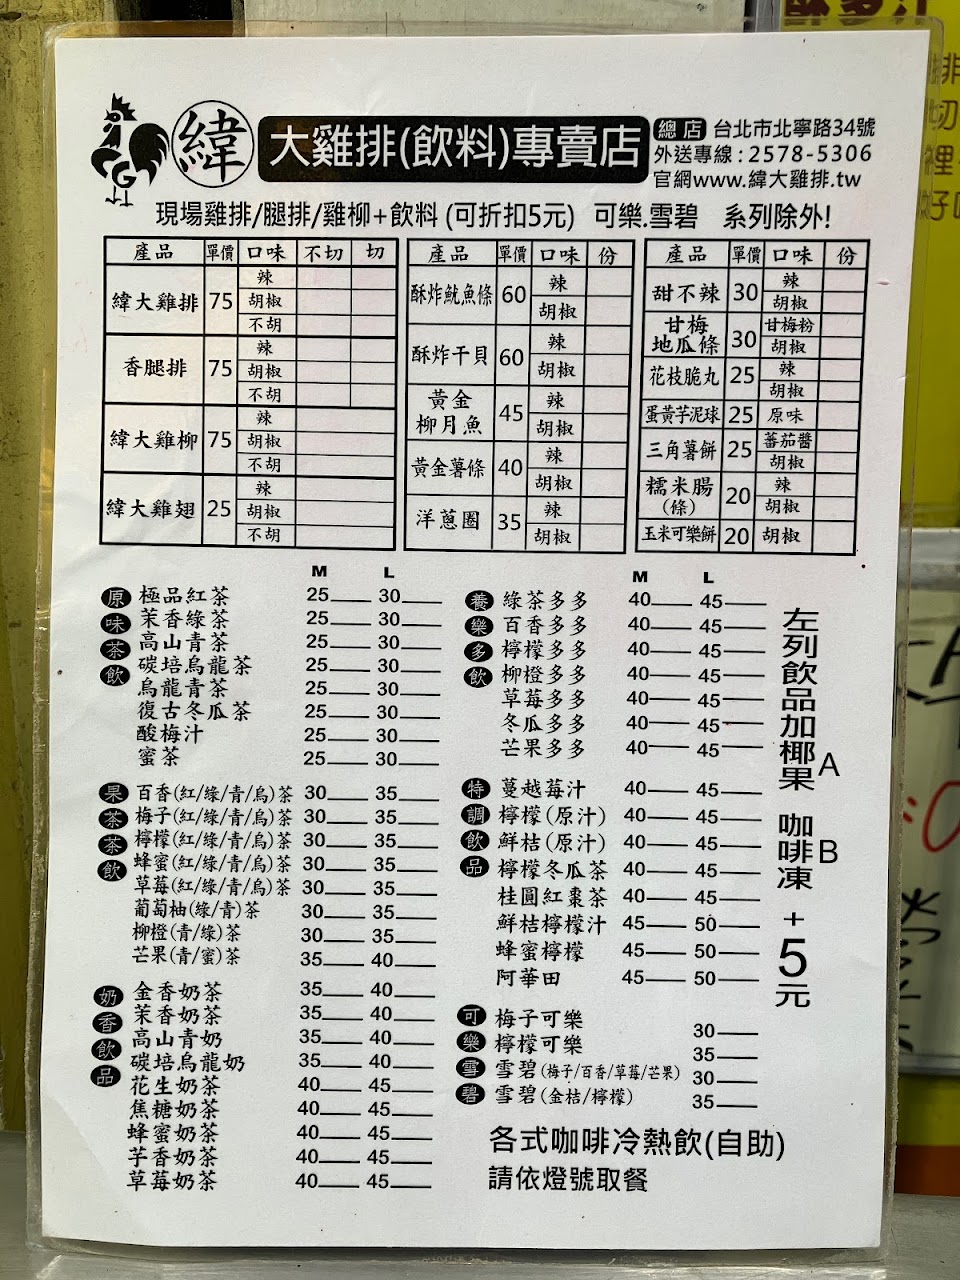 緯 大雞排(飲料)專賣店
總店 台北市北寧路34號
外送專線:2578-5306
官網www.緯大雞排.tw
現場雞排/腿排/雞柳+飲料 (可折扣5元) 可樂.雪碧 系列除外!
產品 單價 口味 不切 切
緯大雞排 75 辣
胡椒
不胡
香腿排 75 辣
胡椒
不胡
緯大雞柳 75 辣
胡椒
不胡
緯大雞翅 25 辣
胡椒
不胡
產品 單價 口味 份
酥炸魷魚條 60 辣
胡椒
酥炸干貝 60 辣
胡椒
黃金柳月魚 45 辣
胡椒
黃金薯條 40 辣
胡椒
洋蔥圈 35 辣
胡椒
產品 單價 口味 份
甜不辣 30 辣
胡椒
甘梅地瓜條 30 甘梅粉
胡椒
花枝脆丸 25 辣
胡椒
蛋黃芋泥球 25 原味
三角薯餅 25 蕃茄醬
胡椒
糯米腸(條) 20 辣
胡椒
玉米可樂餅 20 胡椒
原味茶飲
M L
極品紅茶 25 30
茉香綠茶 25 30
高山青茶 25 30
碳培烏龍茶 25 30
烏龍青茶 25 30
復古冬瓜茶 25 30
酸梅汁 25 30
蜜茶 25 30
果茶茶飲
百香(紅/綠/青/烏)茶 30 35
梅子(紅/綠/青/烏)茶 30 35
檸檬(紅/綠/青/烏)茶 30 35
蜂蜜(紅/綠/青/烏)茶 30 35
草莓(紅/綠/青/烏)茶 30 35
葡萄柚(綠/青)茶 30 35
柳橙(青/綠)茶 30 35
芒果(青/蜜)茶 35 40
奶香飲品
金香奶茶 35 40
茉香奶茶 35 40
高山青奶 35 40
碳培烏龍奶 35 40
花生奶茶 40 45
焦糖奶茶 40 45
蜂蜜奶茶 40 45
芋香奶茶 40 45
草莓奶茶 40 45
養樂多飲
M L
綠茶多多 40 45
百香多多 40 45
檸檬多多 40 45
柳橙多多 40 45
草莓多多 40 45
冬瓜多多 40 45
芒果多多 40 45
特調飲品
蔓越莓汁 40 45
檸檬(原汁) 40 45
鮮桔(原汁) 40 45
檸檬冬瓜茶 40 45
桂圓紅棗茶 40 45
鮮桔檸檬汁 45 50
蜂蜜檸檬 45 50
阿華田 45 50
可樂雪碧
梅子可樂 30
檸檬可樂 35
雪碧(梅子/百香/草莓/芒果) 30
雪碧(金桔/檸檬) 35
左列飲品加椰果A 咖啡凍B +5元
各式咖啡冷熱飲(自助)
請依燈號取餐